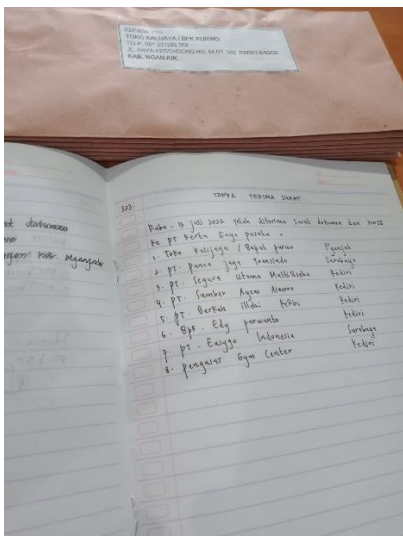 KEPADA YTH
TOKO KALIJAYA / BPK PURNO
TELP. 081
JL. RAYA KEDONDONG NO. 54 RT. 002 BAGOR
KAB. NGANJUK
327.
TANDA TERIMA SURAT.
Rabu, 13 juli 2022 telah diterima surat dokumen dari
ke PT kerta
1. Toko Kalijaga / Bapak purno Nganjuk
2. PT. panca jaya Transindo Surabaya
3. PT. Segara Utama Kediri
4. PT. Sumber Ayem Kediri
5. PT. Berkah illahi Kediri
6. Bpk. Edy purwanto Kediri
7. PT. Easygo Indonesia Surabaya
8. pengasus Gym Center Kediri
dokumen
Kab. Nganjuk